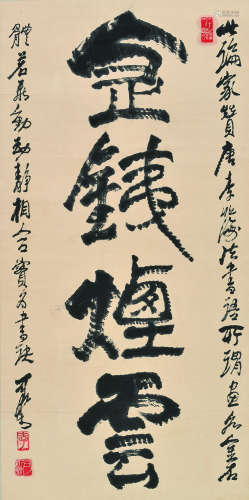 此論家贊唐李北海法書語所謂畫如金石
金銕煙雲
體若飛動動靜相合實為書訣